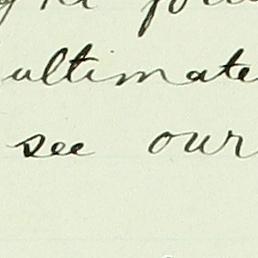 ultimate
see our